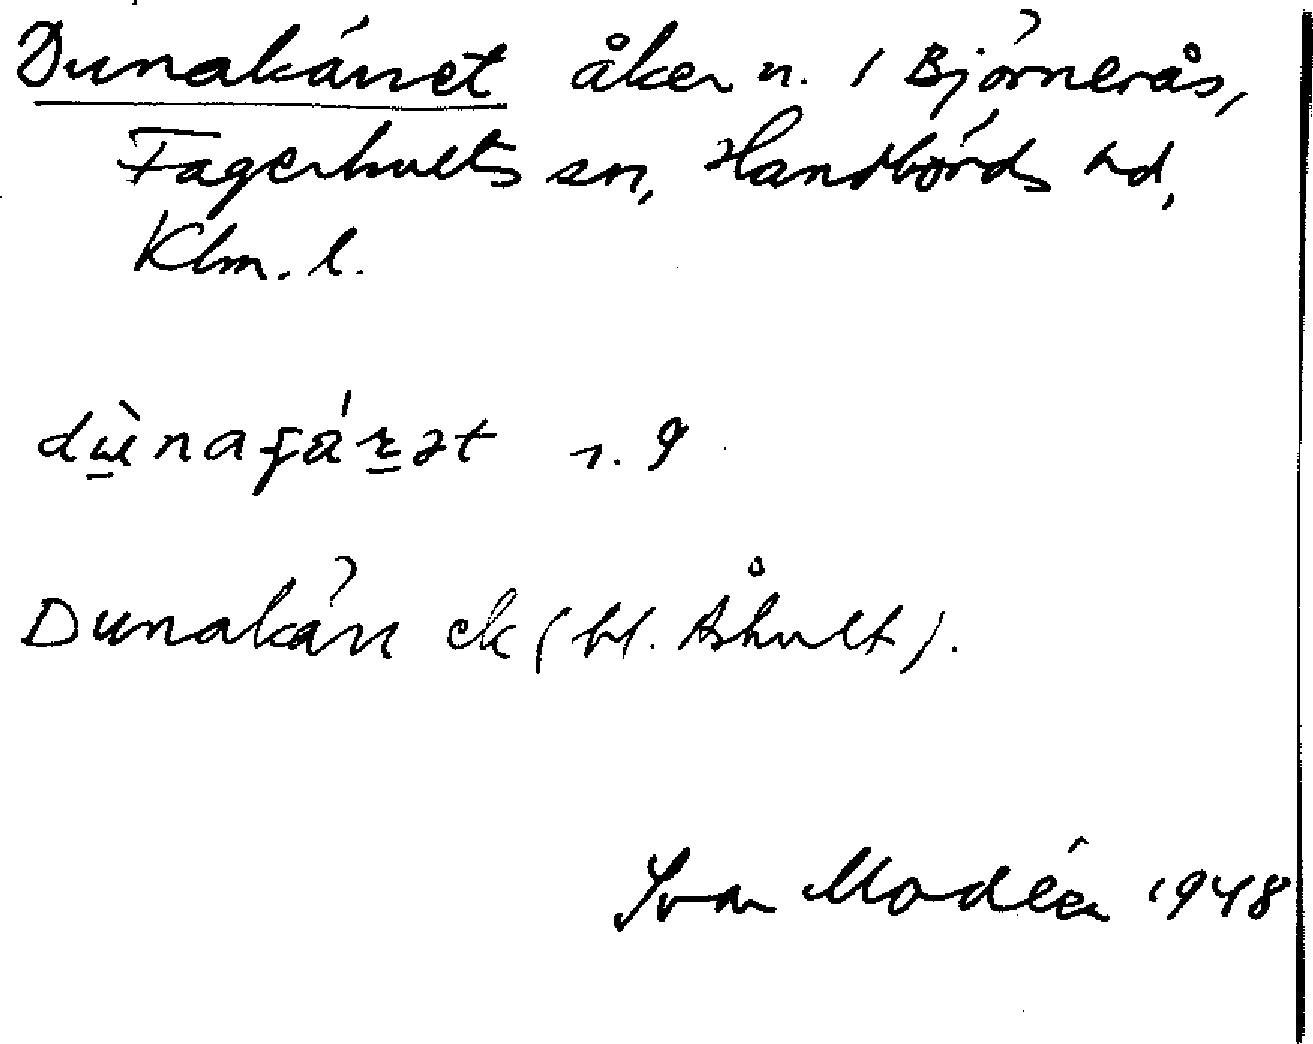 Dunakärret åker n. 1 Björnerås,
Fagerhults sn, Handbörds hd,
Klm. l.
dùnaɟä́ʀət r. 9
Dunakärr ek (bl. Åhult).
Ivar Modéer 1948